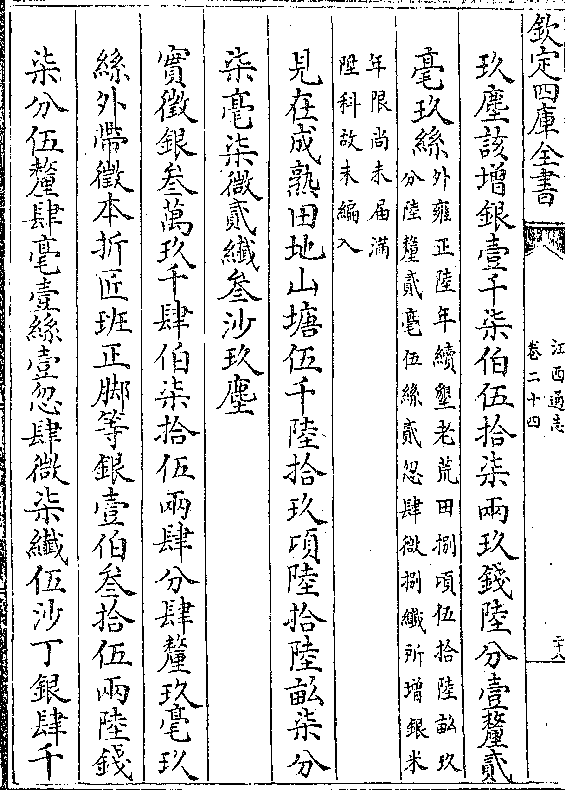 欽定四庫全書
江西通志
卷二十四
二十八
玖塵該增銀壹千柒伯伍拾柒兩玖錢陸分壹釐貳
毫玖絲
外雍正陸年續墾老荒田捌頃伍拾陸畝玖
分陸釐貳毫伍絲貳忽肆微捌纖所增銀米
年限尚未屆滿
陞科故未編入
見在成熟田地山塘伍千陸拾玖頃陸拾陸畝柒分
柒毫柒微貳纖叁沙玖塵
實徵銀叁萬玖千肆伯柒拾伍兩肆分肆釐玖毫玖
絲外帶徵本折匠班正脚等銀壹伯叁拾伍兩陸錢
柒分伍釐肆毫壹絲壹忽肆微柒纖伍沙丁銀肆千